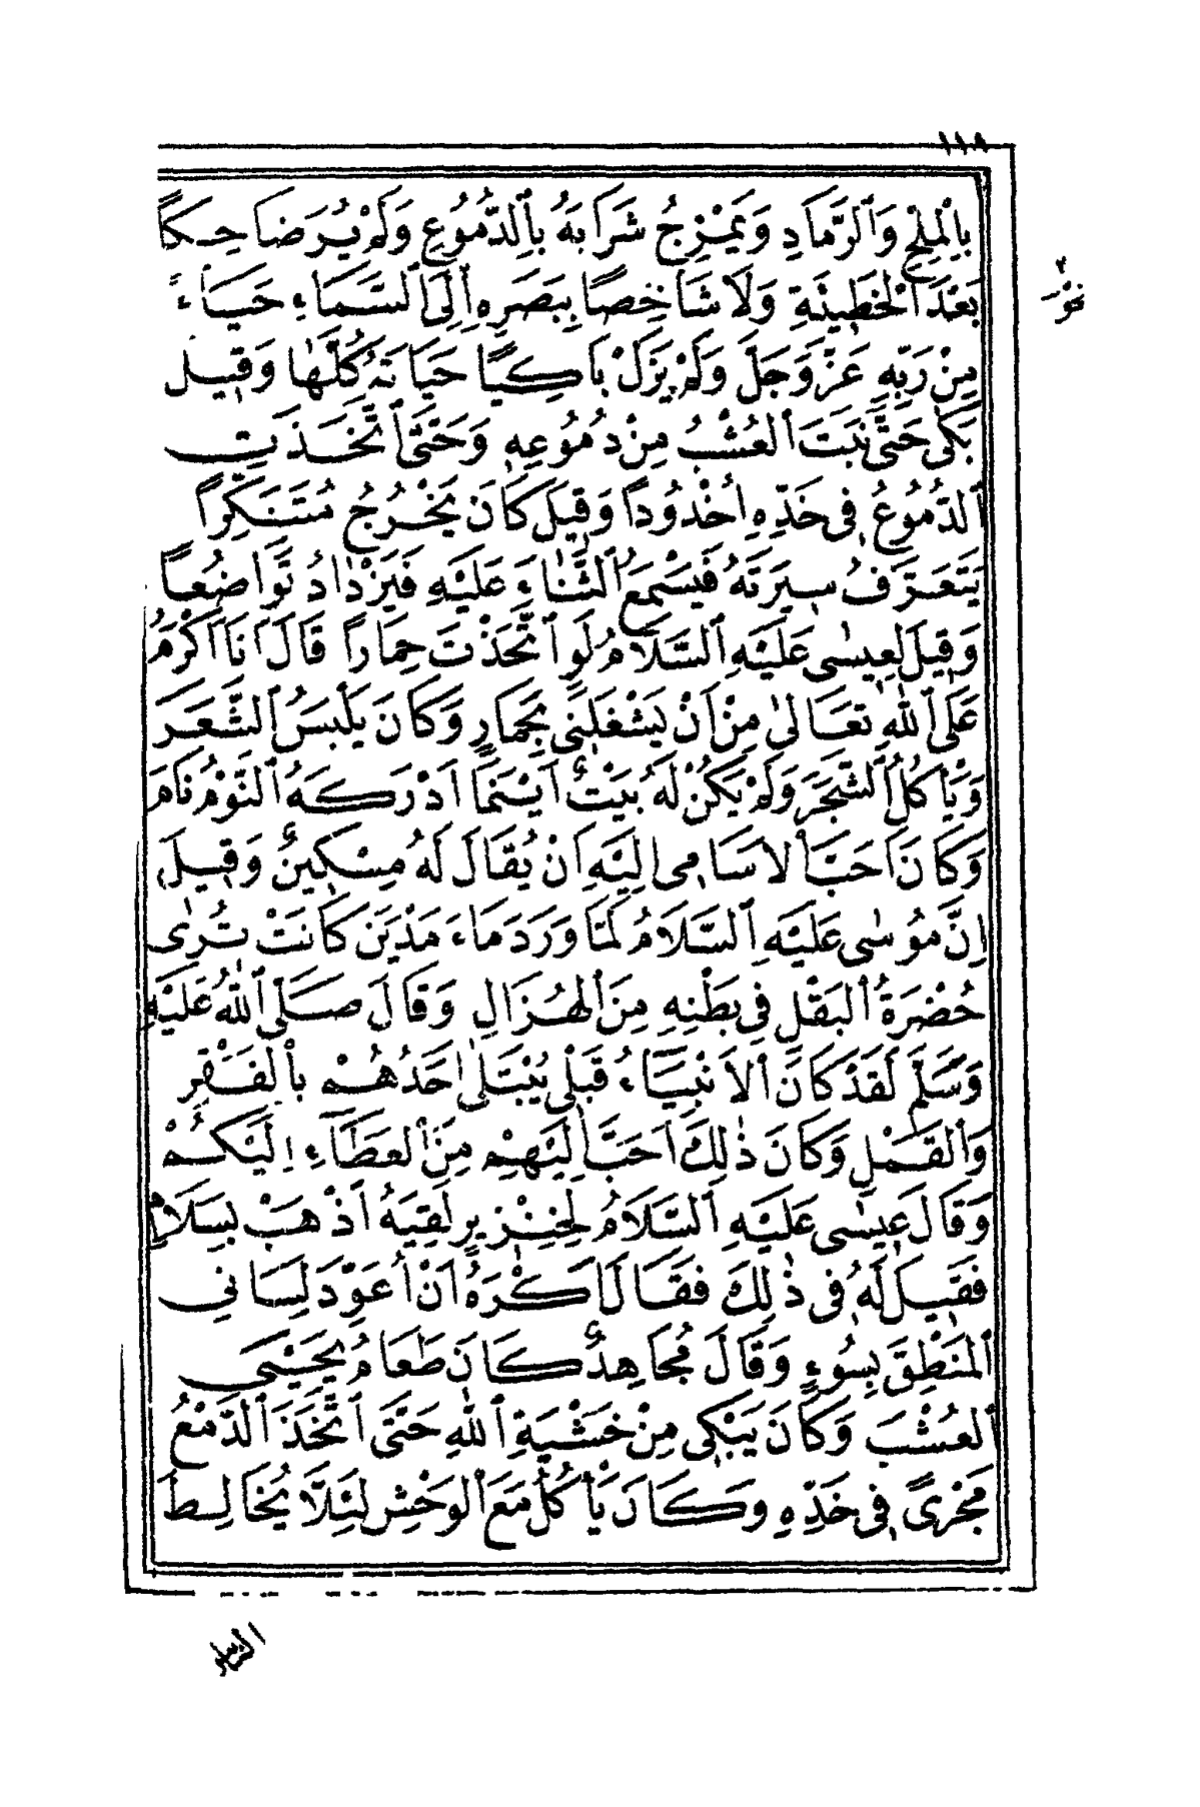 ١١٨
بِالْمِلْحِ وَالرَّمَادِ وَيَمْزِجُ شَرَابَهُ بِالدُّمُوعِ وَلَمْ يُرَ ضَاحِكًا
بَعْدَ الْخَطِيئَةِ وَلَا شَاخِصًا بِبَصَرِهِ إِلَى السَّمَاءِ حَيَاءً
مِنْ رَبِّهِ عَزَّ وَجَلَّ وَلَمْ يَزَلْ بَاكِيًا حَيَاتَهُ كُلَّهَا وَقِيلَ
بَكَى حَتَّى نَبَتَ الْعُشْبُ مِنْ دُمُوعِهِ وَحَتَّى اتَّخَذَتِ
الدُّمُوعُ فِي خَدِّهِ أُخْدُودًا وَقِيلَ كَانَ يَخْرُجُ مُتَنَكِّرًا
يَتَعَرَّفُ سِيرَتَهُ فَيَسْمَعُ الثَّنَاءَ عَلَيْهِ فَيَزْدَادُ تَوَاضُعًا
وَقِيلَ لِعِيسَى عَلَيْهِ السَّلَامُ لَوِ اتَّخَذْتَ حِمَارًا قَالَ أَنَا أَكْرَمُ
عَلَى اللهِ تَعَالَى مِنْ أَنْ يَشْغَلَنِي بِحِمَارٍ وَكَانَ يَلْبَسُ الشَّعَرَ
وَيَأْكُلُ الشَّجَرَ وَلَمْ يَكُنْ لَهُ بَيْتٌ أَيْنَمَا أَدْرَكَهُ النَّوْمُ نَامَ
وَكَانَ أَحَبَّ الْأَسَامِي إِلَيْهِ أَنْ يُقَالَ لَهُ مِسْكِينٌ وَقِيلَ
إِنَّ مُوسَى عَلَيْهِ السَّلَامُ لَمَّا وَرَدَ مَاءَ مَدْيَنَ كَانَتْ تُرَى
خُضْرَةُ الْبَقْلِ فِي بَطْنِهِ مِنَ الْهُزَالِ وَقَالَ صَلَّى اللهُ عَلَيْهِ
وَسَلَّمَ لَقَدْ كَانَ الْأَنْبِيَاءُ قَبْلِي يُبْتَلَى أَحَدُهُمْ بِالْفَقْرِ
وَالْقَمْلِ وَكَانَ ذٰلِكَ أَحَبَّ إِلَيْهِمْ مِنَ الْعَطَاءِ إِلَيْكُمْ
وَقَالَ عِيسَى عَلَيْهِ السَّلَامُ لِخِنْزِيرٍ لَقِيَهُ اذْهَبْ بِسَلَامٍ
فَقِيلَ لَهُ فِي ذٰلِكَ فَقَالَ أَكْرَهُ أَنْ أُعَوِّدَ لِسَانِي
الْمَنْطِقَ بِسُوءٍ وَقَالَ مُجَاهِدٌ كَانَ طَعَامُ يَحْيَى
الْعُشْبَ وَكَانَ يَبْكِي مِنْ خَشْيَةِ اللهِ حَتَّى اتَّخَذَ الدَّمْعُ
مَجْرًى فِي خَدِّهِ وَكَانَ يَأْكُلُ مَعَ الْوَحْشِ لِئَلَّا يُخَالِطَ